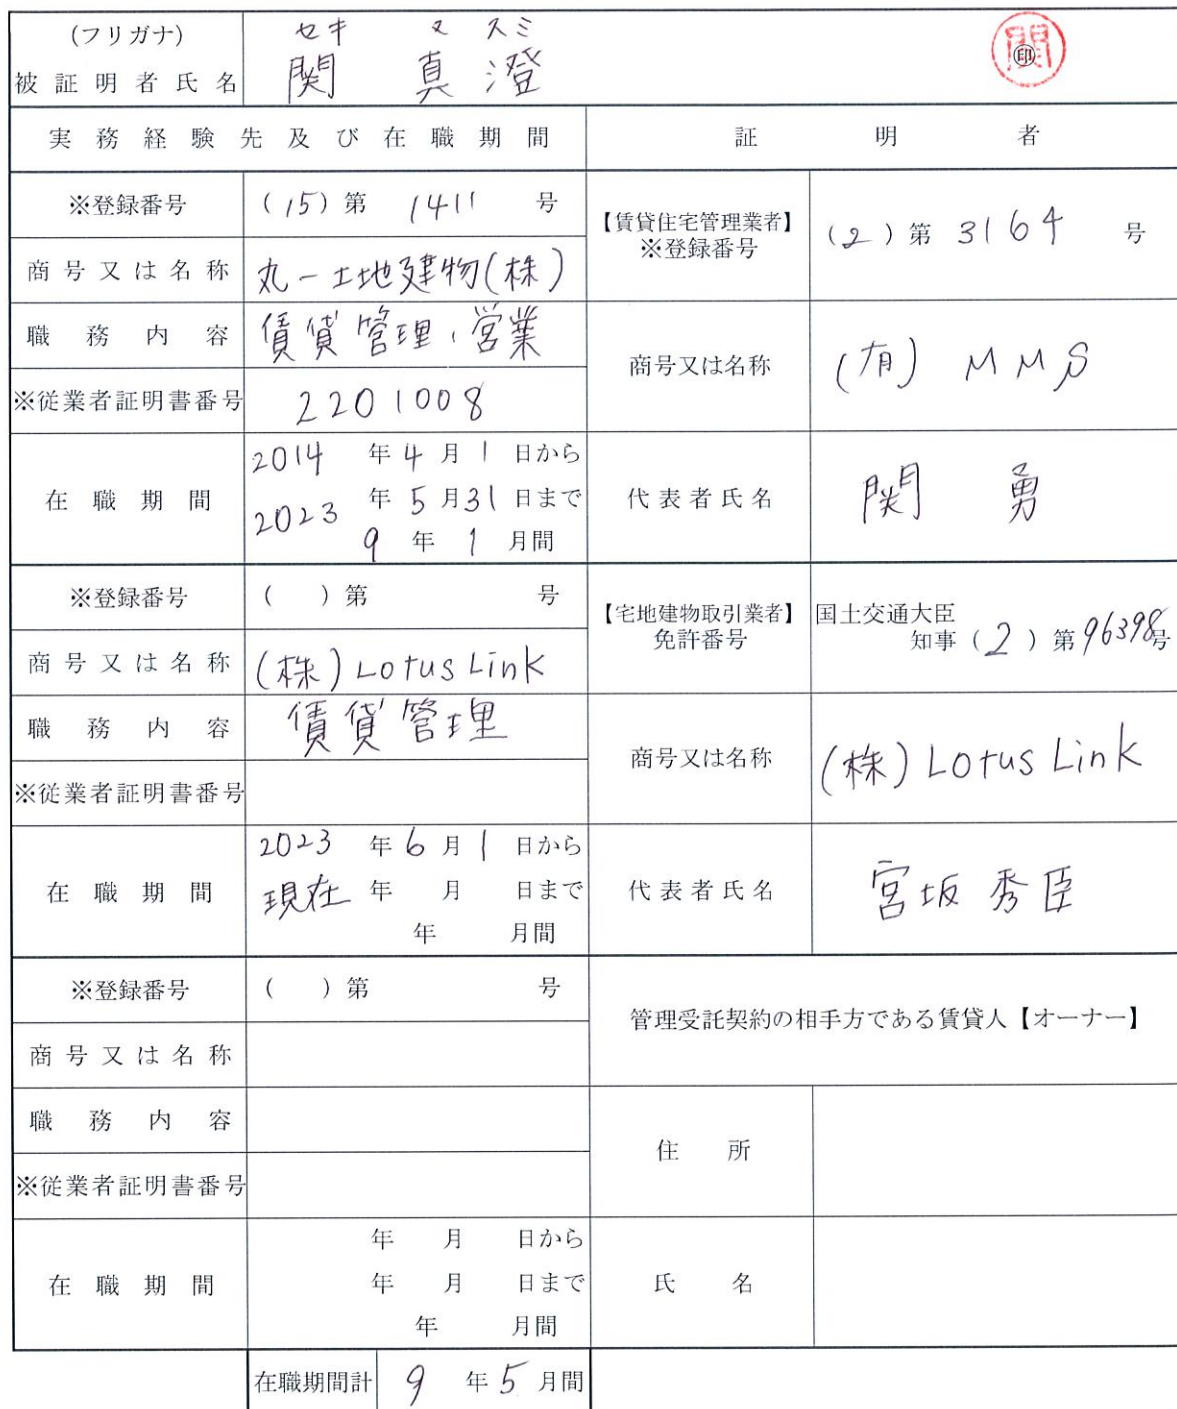 (フリガナ) セキ マスミ
被証明者氏名 関 真澄 ㊞ 関
実務経験先及び在職期間 証明者
※登録番号 (15)第 1411 号
【賃貸住宅管理業者】
※登録番号 (2)第 3164 号
商号又は名称 丸一土地建物(株)
職務内容 賃貸管理、営業
商号又は名称 (有) MMS
※従業者証明書番号 2201008
在職期間
2014 年 4 月 1 日から
2023 年 5 月 31 日まで
9 年 1 月間
代表者氏名 関 勇
※登録番号 ( )第 号
【宅地建物取引業者】
免許番号
国土交通大臣
知事 (2)第96398号
商号又は名称 (株)Lotus Link
職務内容 賃貸管理
商号又は名称 (株)Lotus Link
※従業者証明書番号
在職期間
2023 年 6 月 1 日から
現在 年 月 日まで
年 月間
代表者氏名 宮坂 秀臣
※登録番号 ( )第 号
管理受託契約の相手方である賃貸人【オーナー】
商号又は名称
職務内容
住所
※従業者証明書番号
在職期間
年 月 日から
年 月 日まで
年 月間
氏名
在職期間計 9 年 5 月間